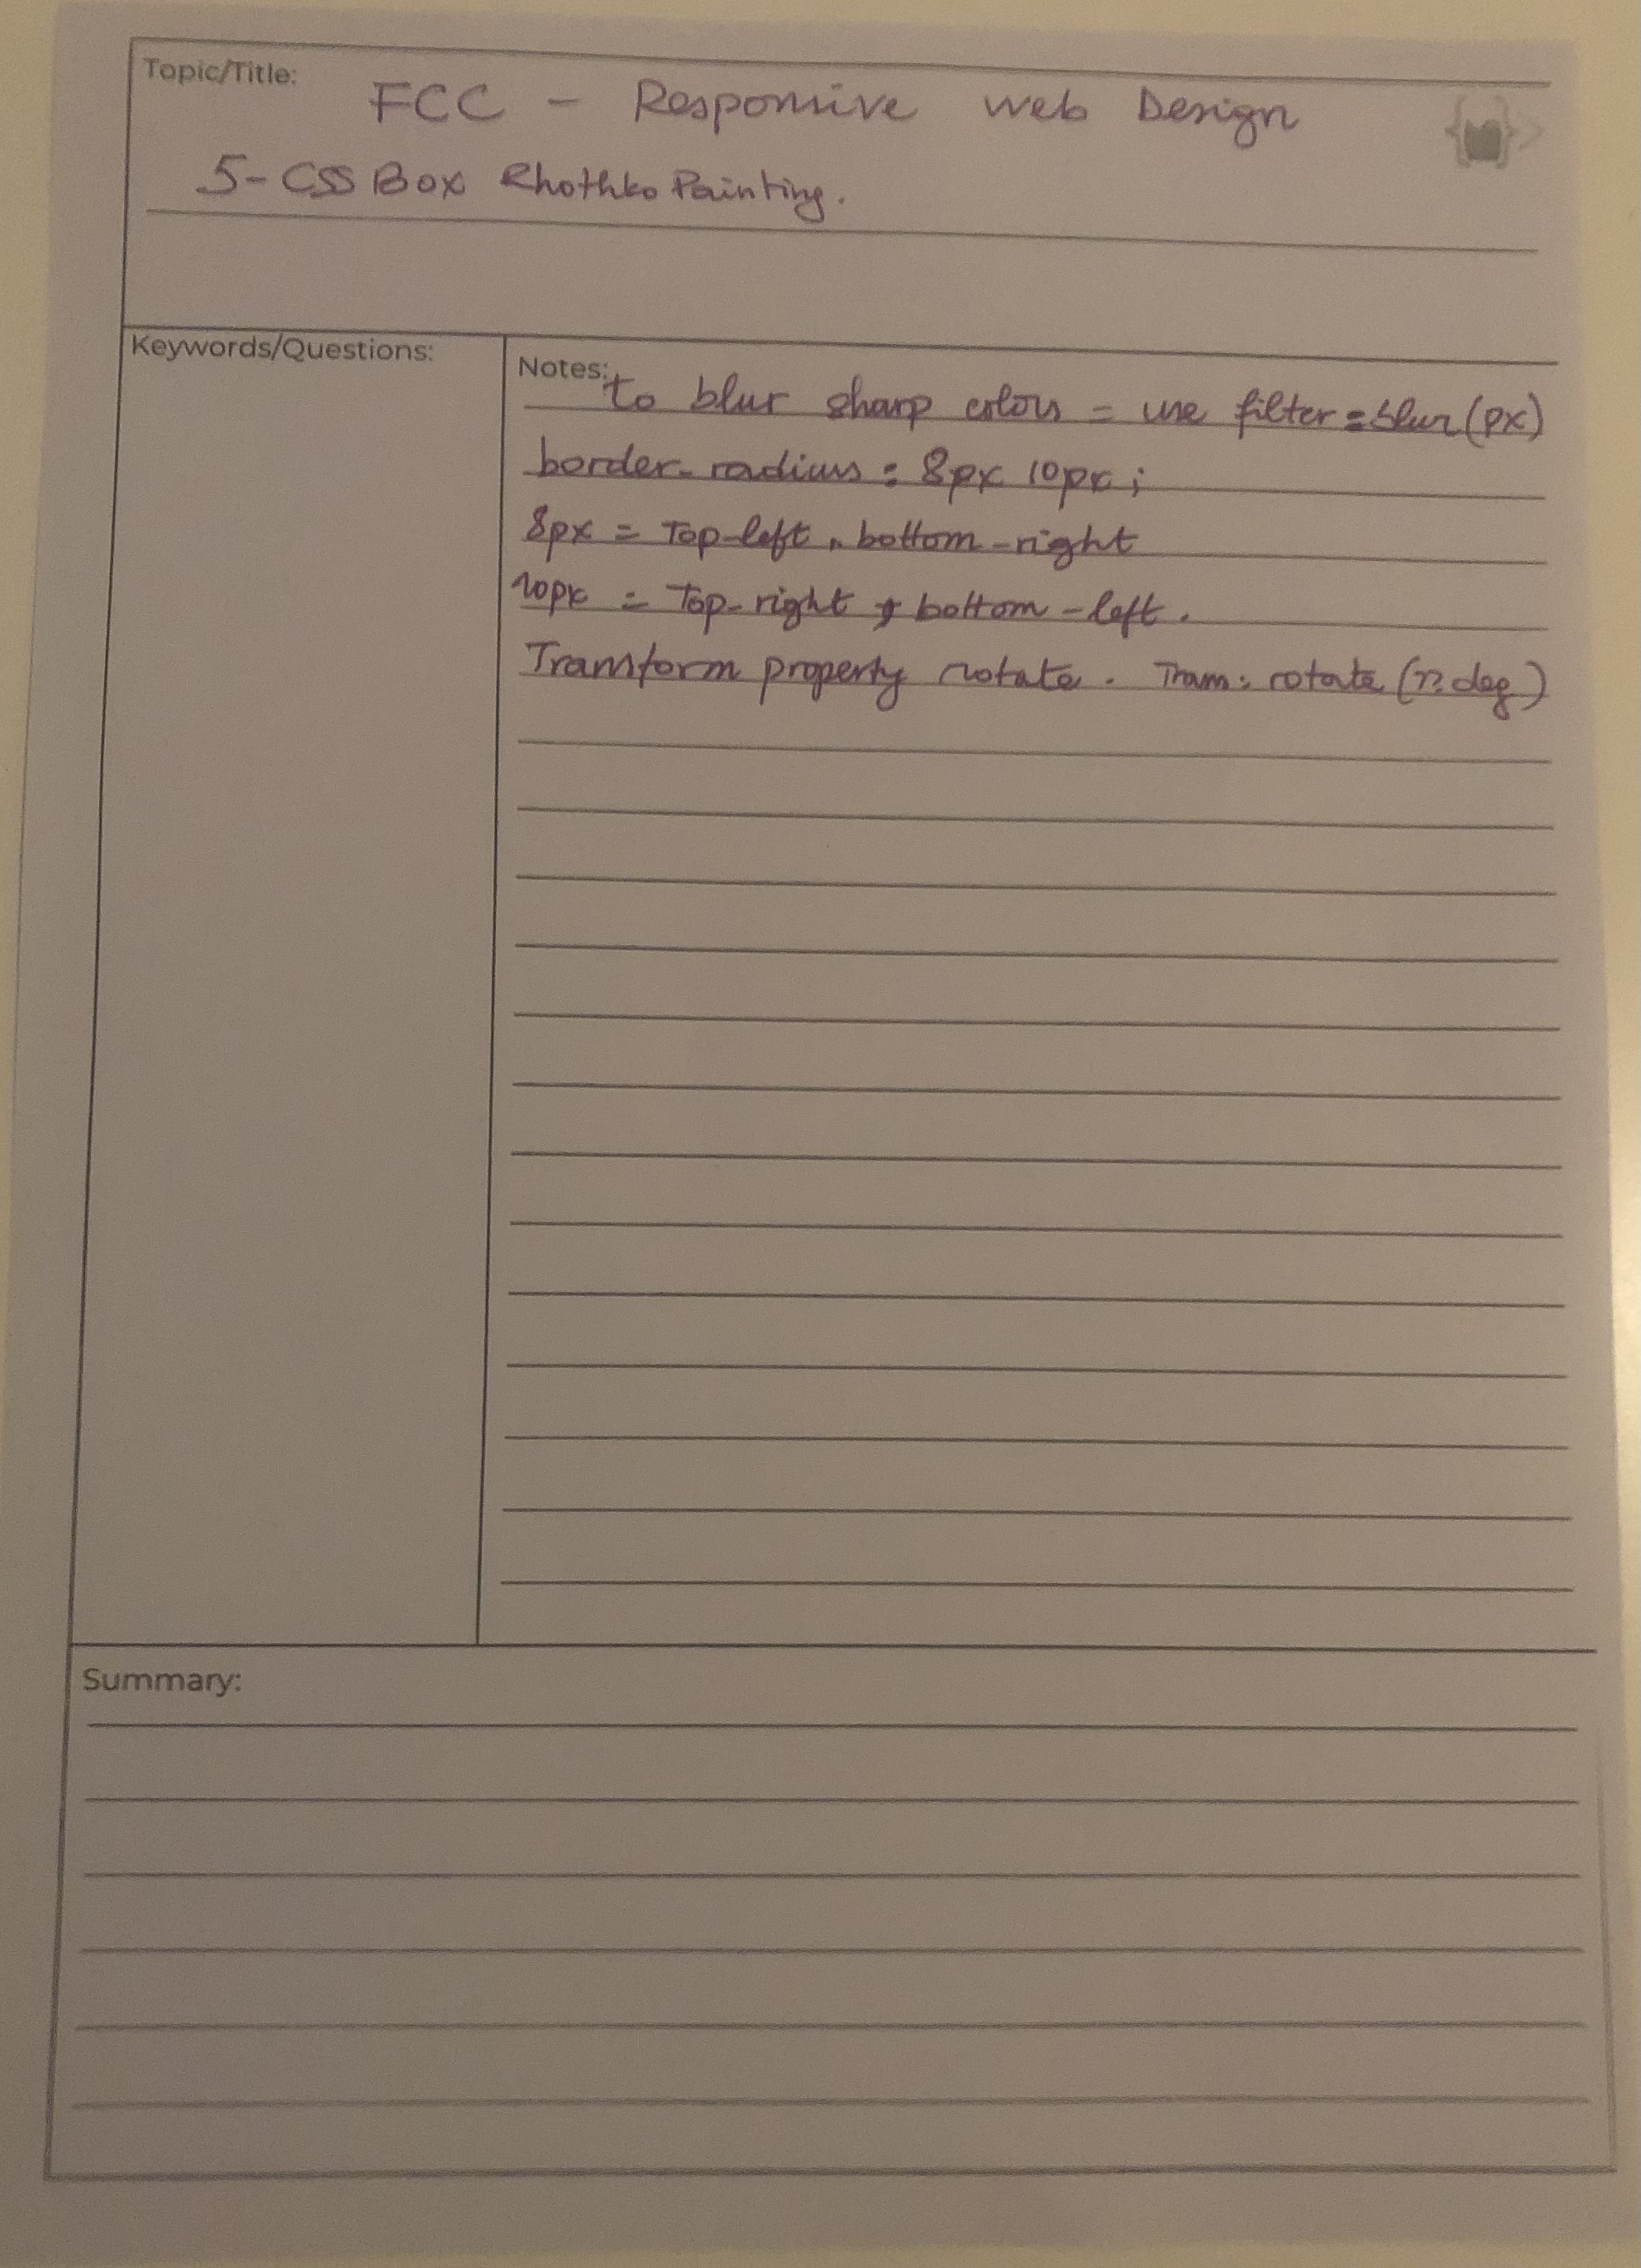 Topic/Title:
FCC - Responsive web Design
5- CSS Box Rhothko Painting.
Keywords/Questions:
Notes:
to blur sharp colors = use filter = blur (px)
border-radius : 8px 10px ;
8px = Top-left , bottom-right
10px = Top-right , bottom-left .
Transform property rotate . Tram : rotate (n deg)
Summary: